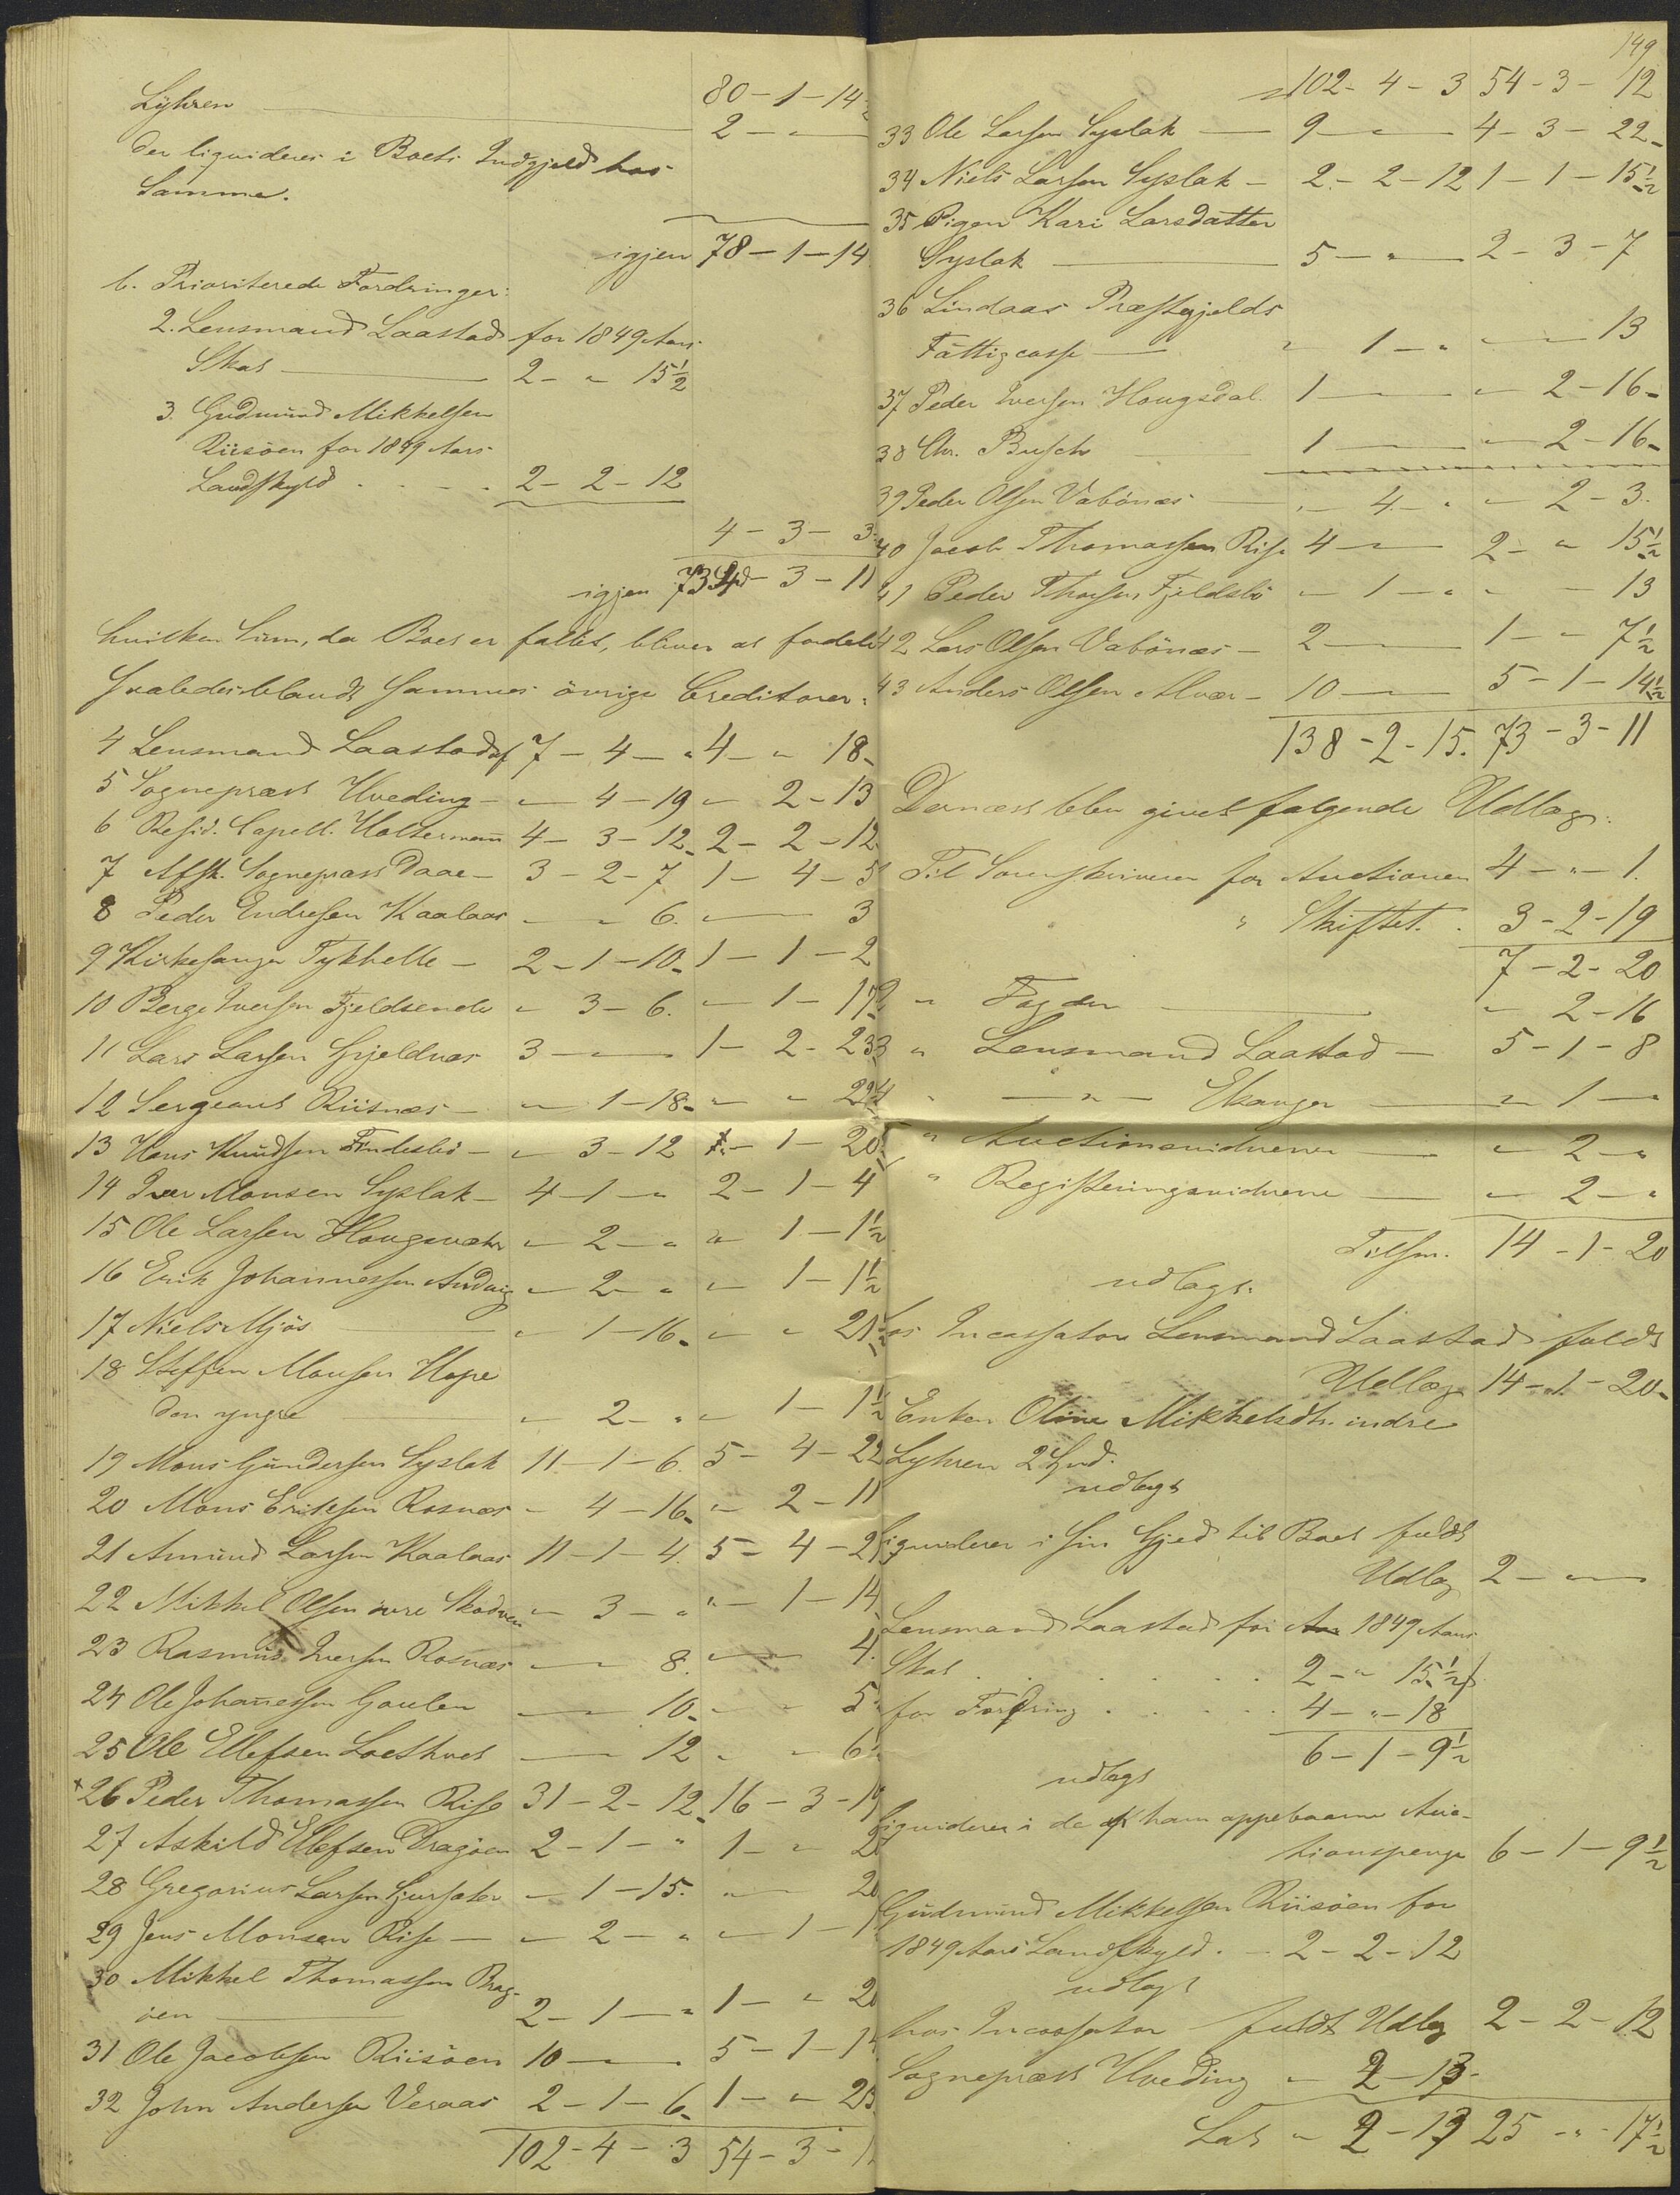 80 - 1 - 14
Lyhren 2 - „ -
der liqvideres i Boets Indgjeld hos
Samme.
igjen 78 - 1 - 14
b. Prioriterede Fordringer:
2. Lensmand Laastad for 1849 Aars
Skat 2 - „ 15½
3. Gudmund Mikkelsen
Riisöen for 1849 Aars
Landskyld 2 - 2 - 12
4 - 3 - 3½
igjen 73 Spd - 3 - 11
hvilken Sum, da Boet er fallit, bliver at fordele
saaledes blandt sammes övrige Creditorer:
4 Lensmand Laastad 7 - 4 - „ 4 - „ 18
5 Sognepræst Hveding - „ - 4 - 19 „ 2 - 13
6 Resid. Capell. Holtermann 4 - 3 - 12 2 - 2 - 12
7 Afsk. Sognepræst Daae - 3 - 2 - 7 1 - 4 - 5
8 Peder Endresen Kaalaas - „ 6. - 3
9 Kirkesanger Tykhelle - 2 - 1 - 10 1 - 1 - 2
10 Berge Iversen Fjeldsende „ 3 - 6. „ 1 - 17
11 Lars Larsen Gjeldnæs 3 - 1 - 2 - 23
12 Sergeant Riisnæs - „ 1 - 18 „ „ 22
13 Hans Knudsen Fondesbö - „ 3 - 12 „ - 1 - 20
14 Iver Monsen Syslak - 4 - 1 - „ 2 - 1 - 4
15 Ole Larsen Hougsvær „ 2 - „ „ 1 - 1½
16 Erik Johannessen Andvig „ 2 - „ „ 1 - 1½
17 Niels Mjös „ 1 - 16 „ „ 21½
18 Steffen Monsen Hope
den yngre „ 2 - „ „ 1 - 1½
19 Mons Gundersen Syslak 11 - 1 - 6. 5 - 4 - 22
20 Mons Eriksen Rosnæs „ 4 - 16 „ 2 - 11
21 Amund Larsen Kaalaas 11 - 1 - 4. 5 - 4 - 21
22 Mikkel Olsen övre Skodven „ 3 - „ „ - 1 - 14
23 Rasmus Iversen Rosnæs - 8. - 4.
24 Ole Johannessen Gaulen - 10 „ - 5
25 Ole Ellefsen Loethvet - 12 „ „ 6½
× 26 Peder Thomassen Rise 31 - 2 - 12 16 - 3 - 19
27 Askild Ellefsen Dragöen 2 - 1 - „ 1 - „ 2
28 Gregorius Larsen Gjersæter „ 1 - 15. „ 20
29 Jens Monsen Rise - „ 2 - „ „ 1 - 1
30 Mikkel Thomassen Drag-
öen 2 - 1 - „ 1 - „ 2
31 Ole Jacobsen Riisöen 10 - 5 - 1 - 14
32 John Andersen Veraas 2 - 1 - 6 1 - „ 23
102 - 4 - 3 54 - 3 - 1
149
102 - 4 - 3 54 - 3 - 12
33 Ole Larsen Syslak 9 - „ - 4 - 3 - 22
34 Niels Larsen Syslak - 2 - 2 - 12 1 - 1 - 15½
35 Pigen Kari Larsdatter
Syslak 5 - „ - 2 - 3 - 7
36 Lindaas Præstegjelds
Fattigcasse „ 1 - „ „ - 13
37 Peder Iversen Hougsdal 1 - „ 2 - 16
38 Chr. Busch 1 - „ 2 - 16
39 Peder Olsen Vabönæs „ - 4 - „ „ 2 - 3.
40 Jacob Thomassen Rise 4 - 2 - „ 15½
41 Peder Thorsen Fjeldsbö „ 1 - „ „ - 13
42 Lars Olsen Vabönæs - 2 - 1 - „ 7½
43 Anders Olsen Alvær - 10 - 5 - 1 - 14½
138 - 2 - 15. 73 - 3 - 11
Dernæst blev givet følgende Udlæg:
Til Sorenskriveren for Auctionen 4 - „ - 1.
„ Skiftet. 3 - 2 - 19
7 - 2 - 20
2 „ Fogden „ 2 - 16
3 „ Lensmand Laastad - 5 - 1 - 8
4 „ - „ - Ekanger „ 1 - „
„ Auctionsvidnerne „ 2 - „
„ Registeringsvidnerne „ 2 - „
Tilsm. 14 - 1 - 20
udlagt.
hos Incassator Lensmand Laastad fuldt
Udlæg 14 - 1 - 20
Enken Oline Mikkelsdtr. indre
Lyhren 2 Spd.
udlagt
liqviderer i sin Gjeld til Boet fuldt
Udlæg 2 - „ -
Lensmand Laastad for Aar 1849 Aars
Skat 2 - „ 15½
for Fordring 4 - „ - 18
6 - 1 - 9½
udlagt
liqviderer i de af ham oppebaarne Auc-
tionspenge 6 - 1 - 9½
Gudmund Mikkelsen Riisöen for
1849 Aars Landskyld. 2 - 2 - 12
udlagt
hos Incassator fuldt Udlæg 2 - 2 - 12
Sognepræst Hveding „ 2 - 13
Lat „ 2 - 13 25 - „ - 17½